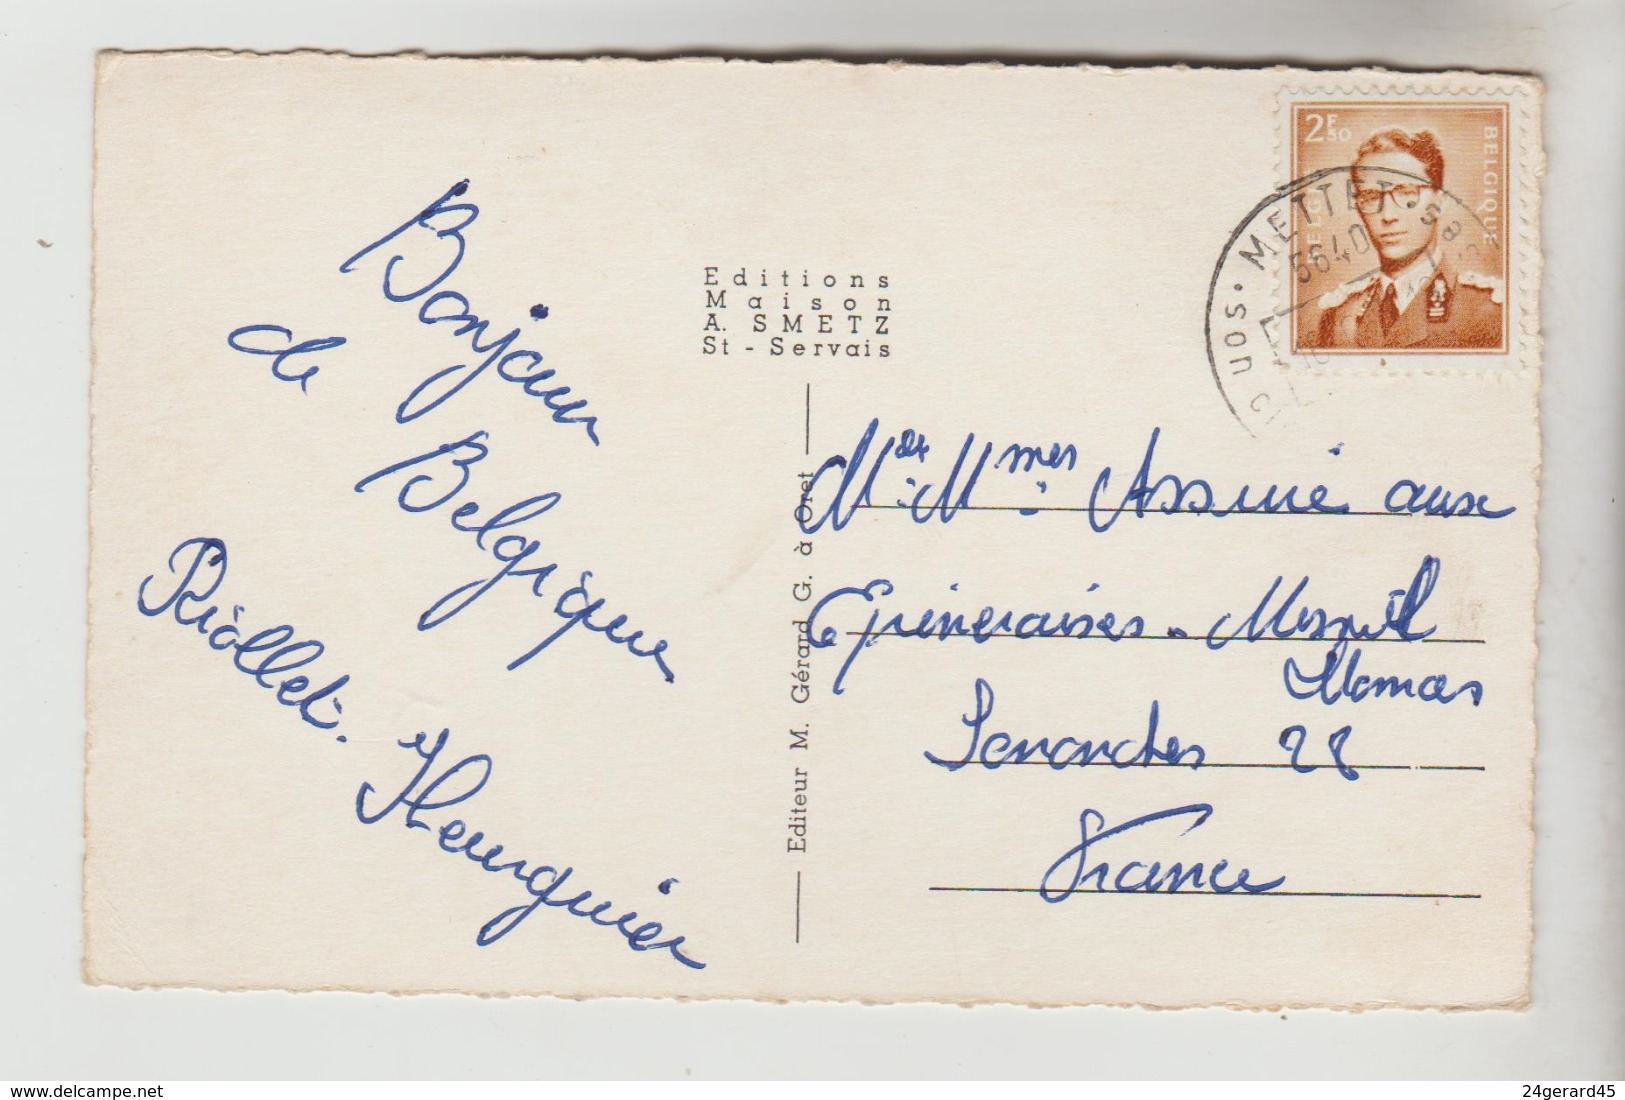 Bonjour
de
Belgique
Riollet.
Editions
Maison
A. SMETZ
St - Servais
Editeur M. Gérard G. à Oret
2F50
BELGIQUE
METTET
5640
Mrs Mmes Assiné aux
Epineraises - Mesnil
Thomas
Senonches 28
France
delcampe.net
24gerard45